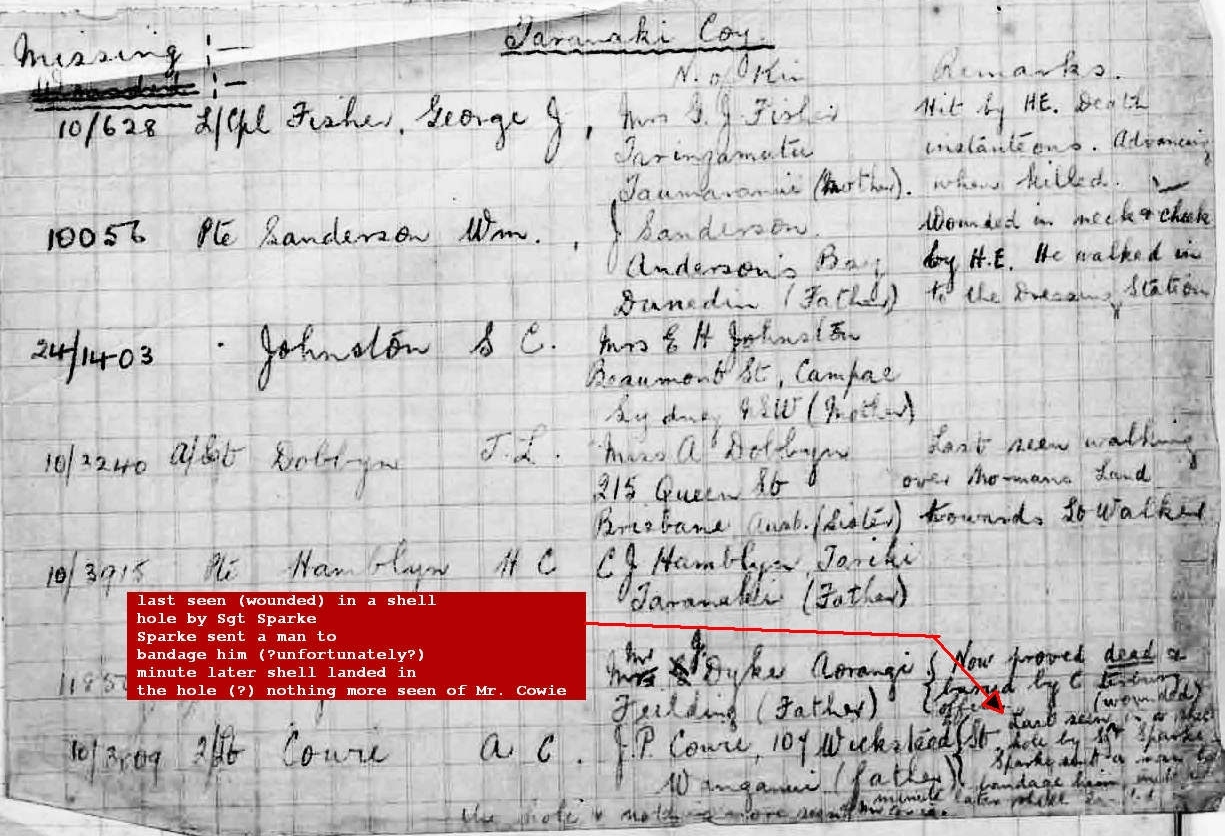 Taranaki Coy.
Missing :-
Wounded :-
N. of Kin Remarks.
10/628 L/Cpl Fisher, George J, Mrs G. J Fisher Hit by HE. Death
Taringamutu instánteons. Advancing
Taumaranui (Mother). when killed.
10056 Pte Sanderson Wm. , J Sanderson. Wounded in neck & cheek
Anderson's Bay by H.E. He walked in
Dunedin (Father) to the Dressing Station
24/1403 Johnston S C. Mrs E H Johnston
Beaumont St, Campae
Sydney NSW (Mother)
10/2240 A/Sgt Dobbyn T. L. Miss A Dobbyn Last seen walking
215 Queen St over No-mans Land
Brisbane Aust. (Sister) towards Lt Walker
10/3915 Pte Hamblyn H C C J Hamblyn, Tariki
Taranaki (Father)
last seen (wounded) in a shell
hole by Sgt Sparke
Sparke sent a man to
bandage him (?unfortunately?)
minute later shell landed in
the hole (?) nothing more seen of Mr. Cowie
Mr J Dyke Aorangi Now proved dead &
Feilding (Father) buried by C
(wounded)
10/3809 2/Lt Cowie A C. J. P. Cowie, 107 Wicksteed St, Last seen in a shell
hole by Sgt Sparke
Wanganui (father) Sparke sent a man to
bandage him
minute later shell
the hole & nothing more seen of Mr Cowie.